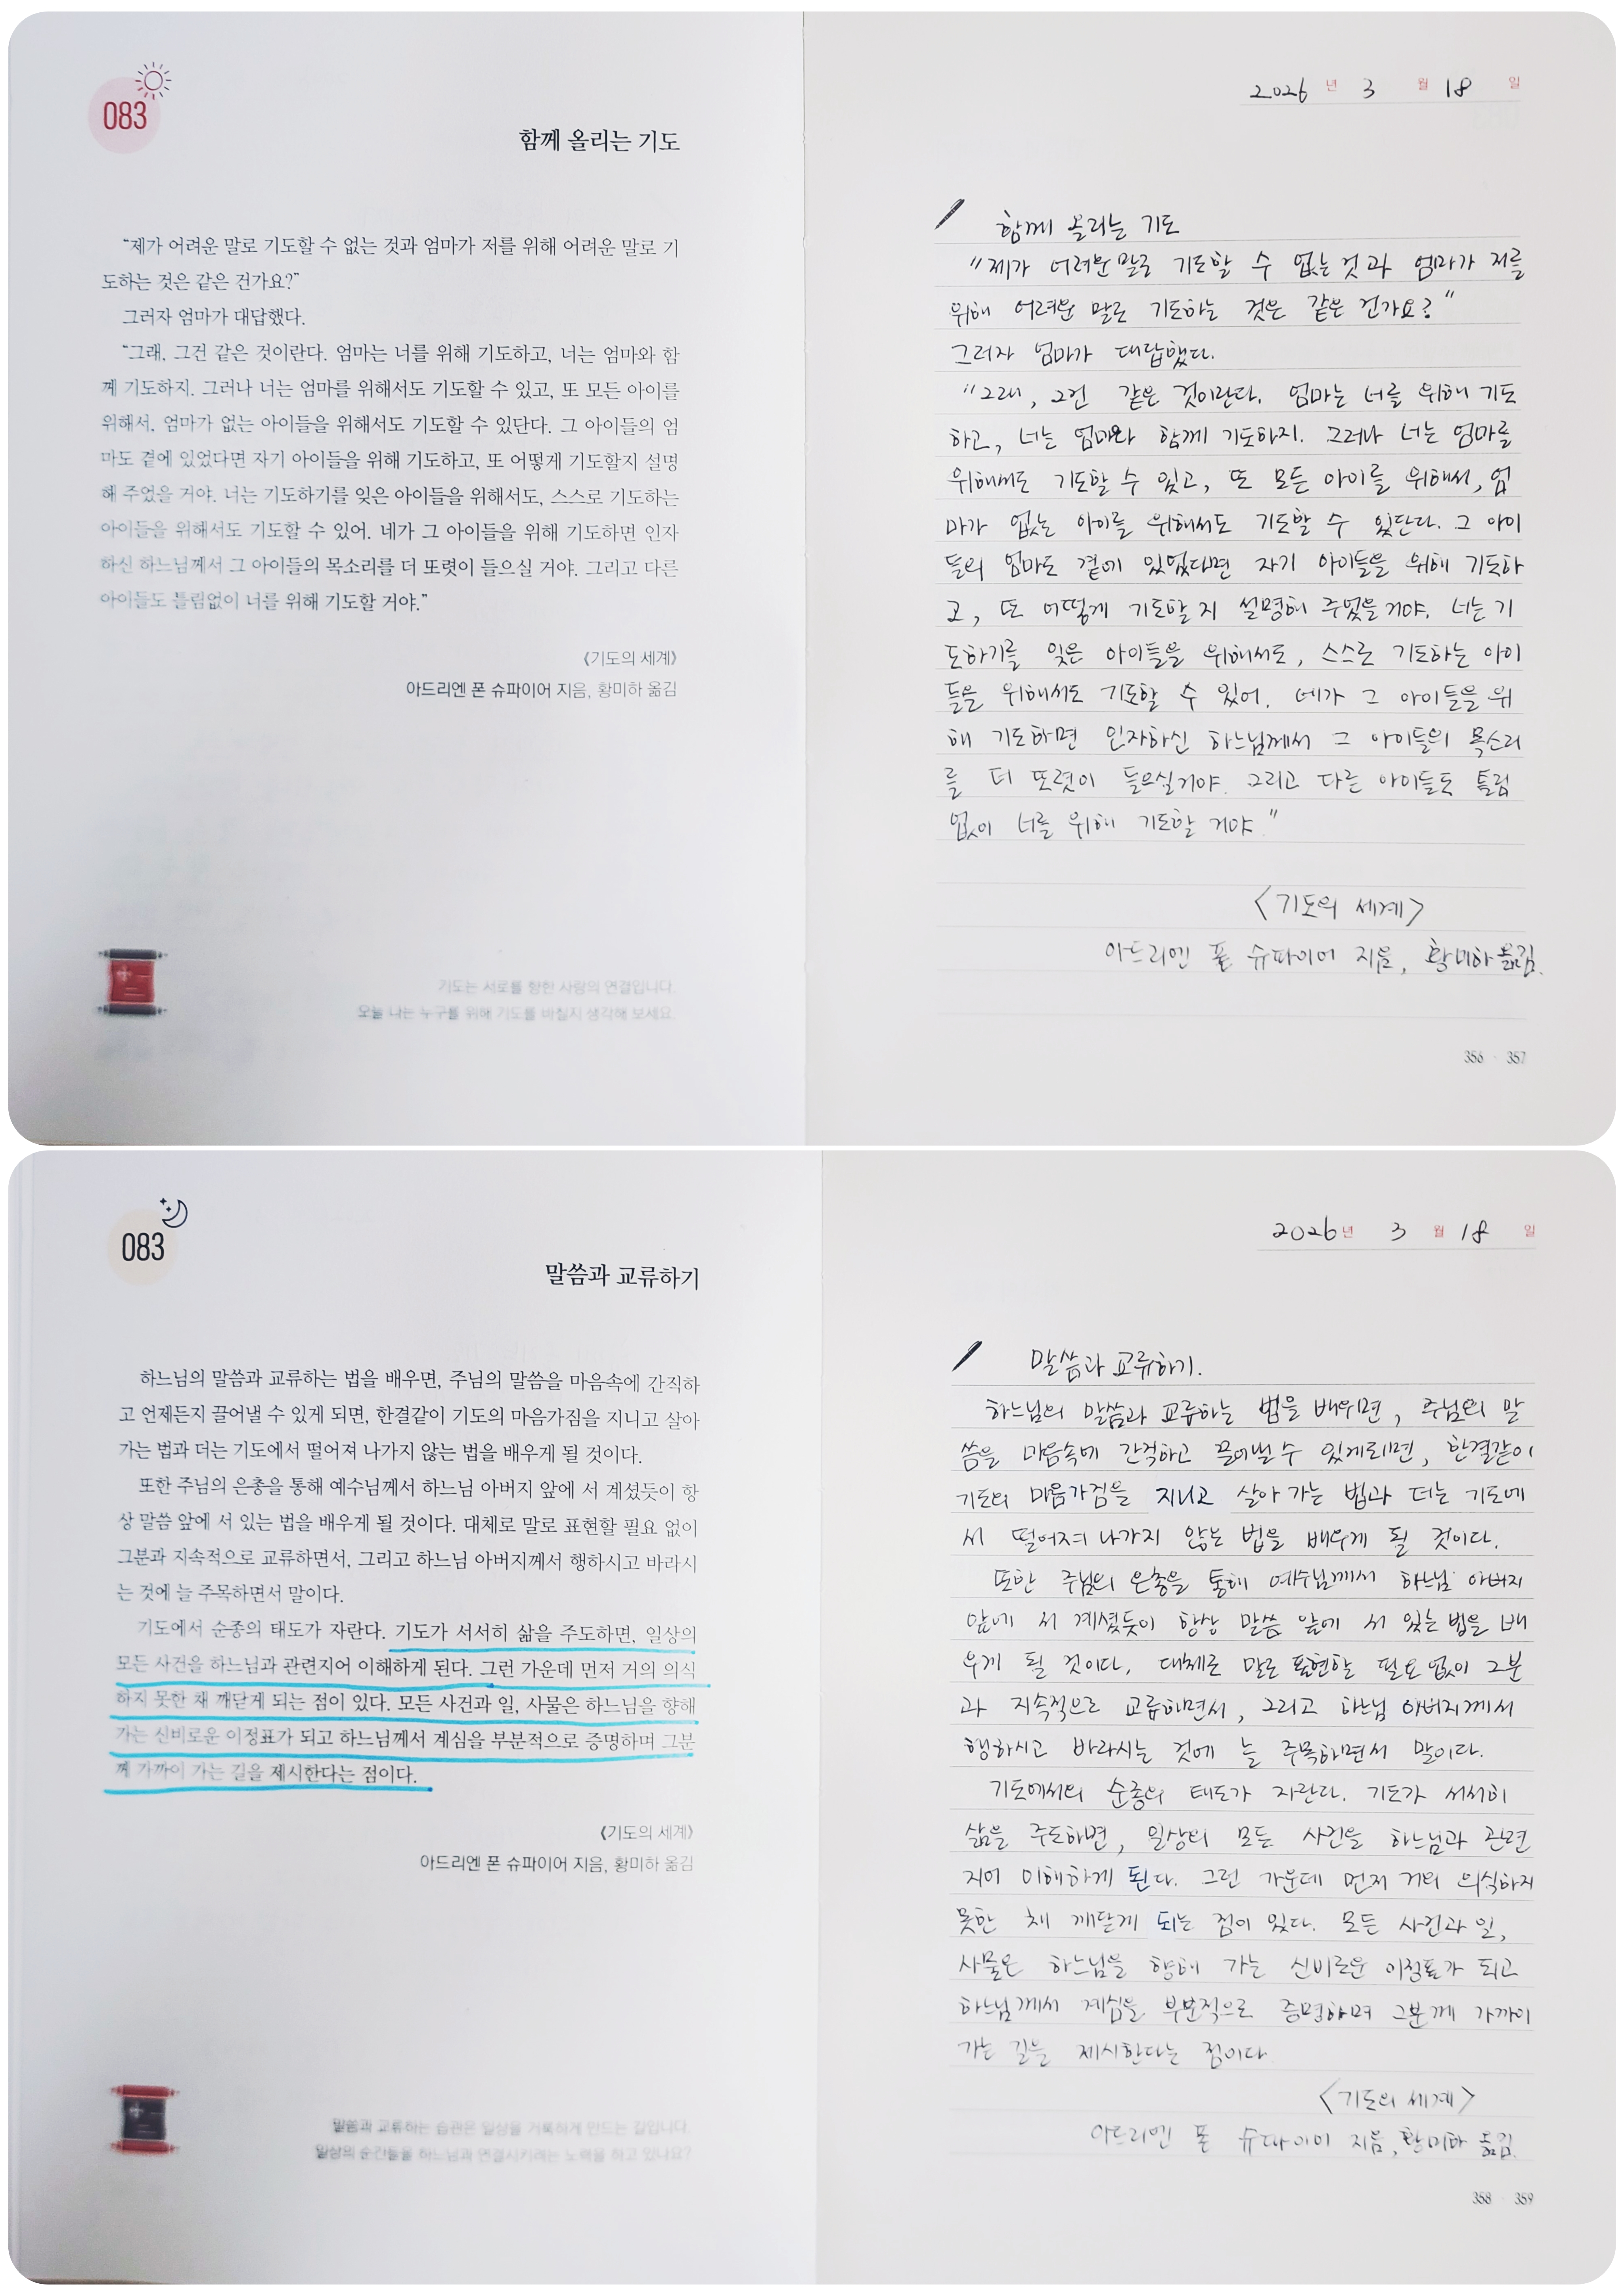 083
함께 올리는 기도
“제가 어려운 말로 기도할 수 없는 것과 엄마가 저를 위해 어려운 말로 기
도하는 것은 같은 건가요?”
그러자 엄마가 대답했다.
“그래, 그건 같은 것이란다. 엄마는 너를 위해 기도하고, 너는 엄마와 함
께 기도하지. 그러나 너는 엄마를 위해서도 기도할 수 있고, 또 모든 아이를
위해서, 엄마가 없는 아이들을 위해서도 기도할 수 있단다. 그 아이들의 엄
마도 곁에 있었다면 자기 아이들을 위해 기도하고, 또 어떻게 기도할지 설명
해 주었을 거야. 너는 기도하기를 잊은 아이들을 위해서도, 스스로 기도하는
아이들을 위해서도 기도할 수 있어. 네가 그 아이들을 위해 기도하면 인자
하신 하느님께서 그 아이들의 목소리를 더 또렷이 들으실 거야. 그리고 다른
아이들도 틀림없이 너를 위해 기도할 거야.”
《기도의 세계》
아드리엔 폰 슈파이어 지음, 황미하 옮김
기도는 서로를 향한 사랑의 연결입니다.
오늘 나는 누구를 위해 기도를 바칠지 생각해 보세요.
2026 년 3 월 18 일
함께 올리는 기도
“제가 어려운 말로 기도할 수 없는 것과 엄마가 저를
위해 어려운 말로 기도하는 것은 같은 건가요?”
그러자 엄마가 대답했다.
“그래, 그건 같은 것이란다. 엄마는 너를 위해 기도
하고, 너는 엄마와 함께 기도하지. 그러나 너는 엄마를
위해서도 기도할 수 있고, 또 모든 아이를 위해서, 엄
마가 없는 아이를 위해서도 기도할 수 있단다. 그 아이
들의 엄마도 곁에 있었다면 자기 아이들을 위해 기도하
고, 또 어떻게 기도할지 설명해 주었을 거야. 너는 기
도하기를 잊은 아이들을 위해서도, 스스로 기도하는 아이
들을 위해서도 기도할 수 있어. 네가 그 아이들을 위
해 기도하면 인자하신 하느님께서 그 아이들의 목소리
를 더 또렷이 들으실거야. 그리고 다른 아이들도 틀림
없이 너를 위해 기도할 거야.”
<기도의 세계>
아드리엔 폰 슈파이어 지음, 황미하 옮김.
356 · 357
083
말씀과 교류하기
하느님의 말씀과 교류하는 법을 배우면, 주님의 말씀을 마음속에 간직하
고 언제든지 끌어낼 수 있게 되면, 한결같이 기도의 마음가짐을 지니고 살아
가는 법과 더는 기도에서 떨어져 나가지 않는 법을 배우게 될 것이다.
또한 주님의 은총을 통해 예수님께서 하느님 아버지 앞에 서 계셨듯이 항
상 말씀 앞에 서 있는 법을 배우게 될 것이다. 대체로 말로 표현할 필요 없이
그분과 지속적으로 교류하면서, 그리고 하느님 아버지께서 행하시고 바라시
는 것에 늘 주목하면서 말이다.
기도에서 순종의 태도가 자란다. 기도가 서서히 삶을 주도하면, 일상의
모든 사건을 하느님과 관련지어 이해하게 된다. 그런 가운데 먼저 거의 의식
하지 못한 채 깨닫게 되는 점이 있다. 모든 사건과 일, 사물은 하느님을 향해
가는 신비로운 이정표가 되고 하느님께서 계심을 부분적으로 증명하며 그분
께 가까이 가는 길을 제시한다는 점이다.
《기도의 세계》
아드리엔 폰 슈파이어 지음, 황미하 옮김
말씀과 교류하는 습관은 일상을 거룩하게 만드는 길입니다.
일상의 순간들을 하느님과 연결시키려는 노력을 하고 있나요?
2026년 3 월 18 일
말씀과 교류하기.
하느님의 말씀과 교류하는 법을 배우면, 주님의 말
씀을 마음속에 간직하고 끌어낼 수 있게되면, 한결같이
기도의 마음가짐을 지니고 살아 가는 법과 더는 기도에
서 떨어져 나가지 않는 법을 배우게 될 것이다.
또한 주님의 은총을 통해 예수님께서 하느님 아버지
앞에 서 계셨듯이 항상 말씀 앞에 서 있는 법을 배
우게 될 것이다. 대체로 말로 표현할 필요없이 그분
과 지속적으로 교류하면서, 그리고 하느님 아버지께서
행하시고 바라시는 것에 늘 주목하면서 말이다.
기도에서의 순종의 태도가 자란다. 기도가 서서히
삶을 주도하면, 일상의 모든 사건을 하느님과 관련
지어 이해하게 된다. 그런 가운데 먼저 거의 의식하지
못한 채 깨닫게 되는 점이 있다. 모든 사건과 일,
사물은 하느님을 향해 가는 신비로운 이정표가 되고
하느님께서 계심을 부분적으로 증명하며 그분께 가까이
가는 길을 제시한다는 점이다
<기도의 세계>
아드리엔 폰 슈파이어 지음, 황미하 옮김.
358 · 359